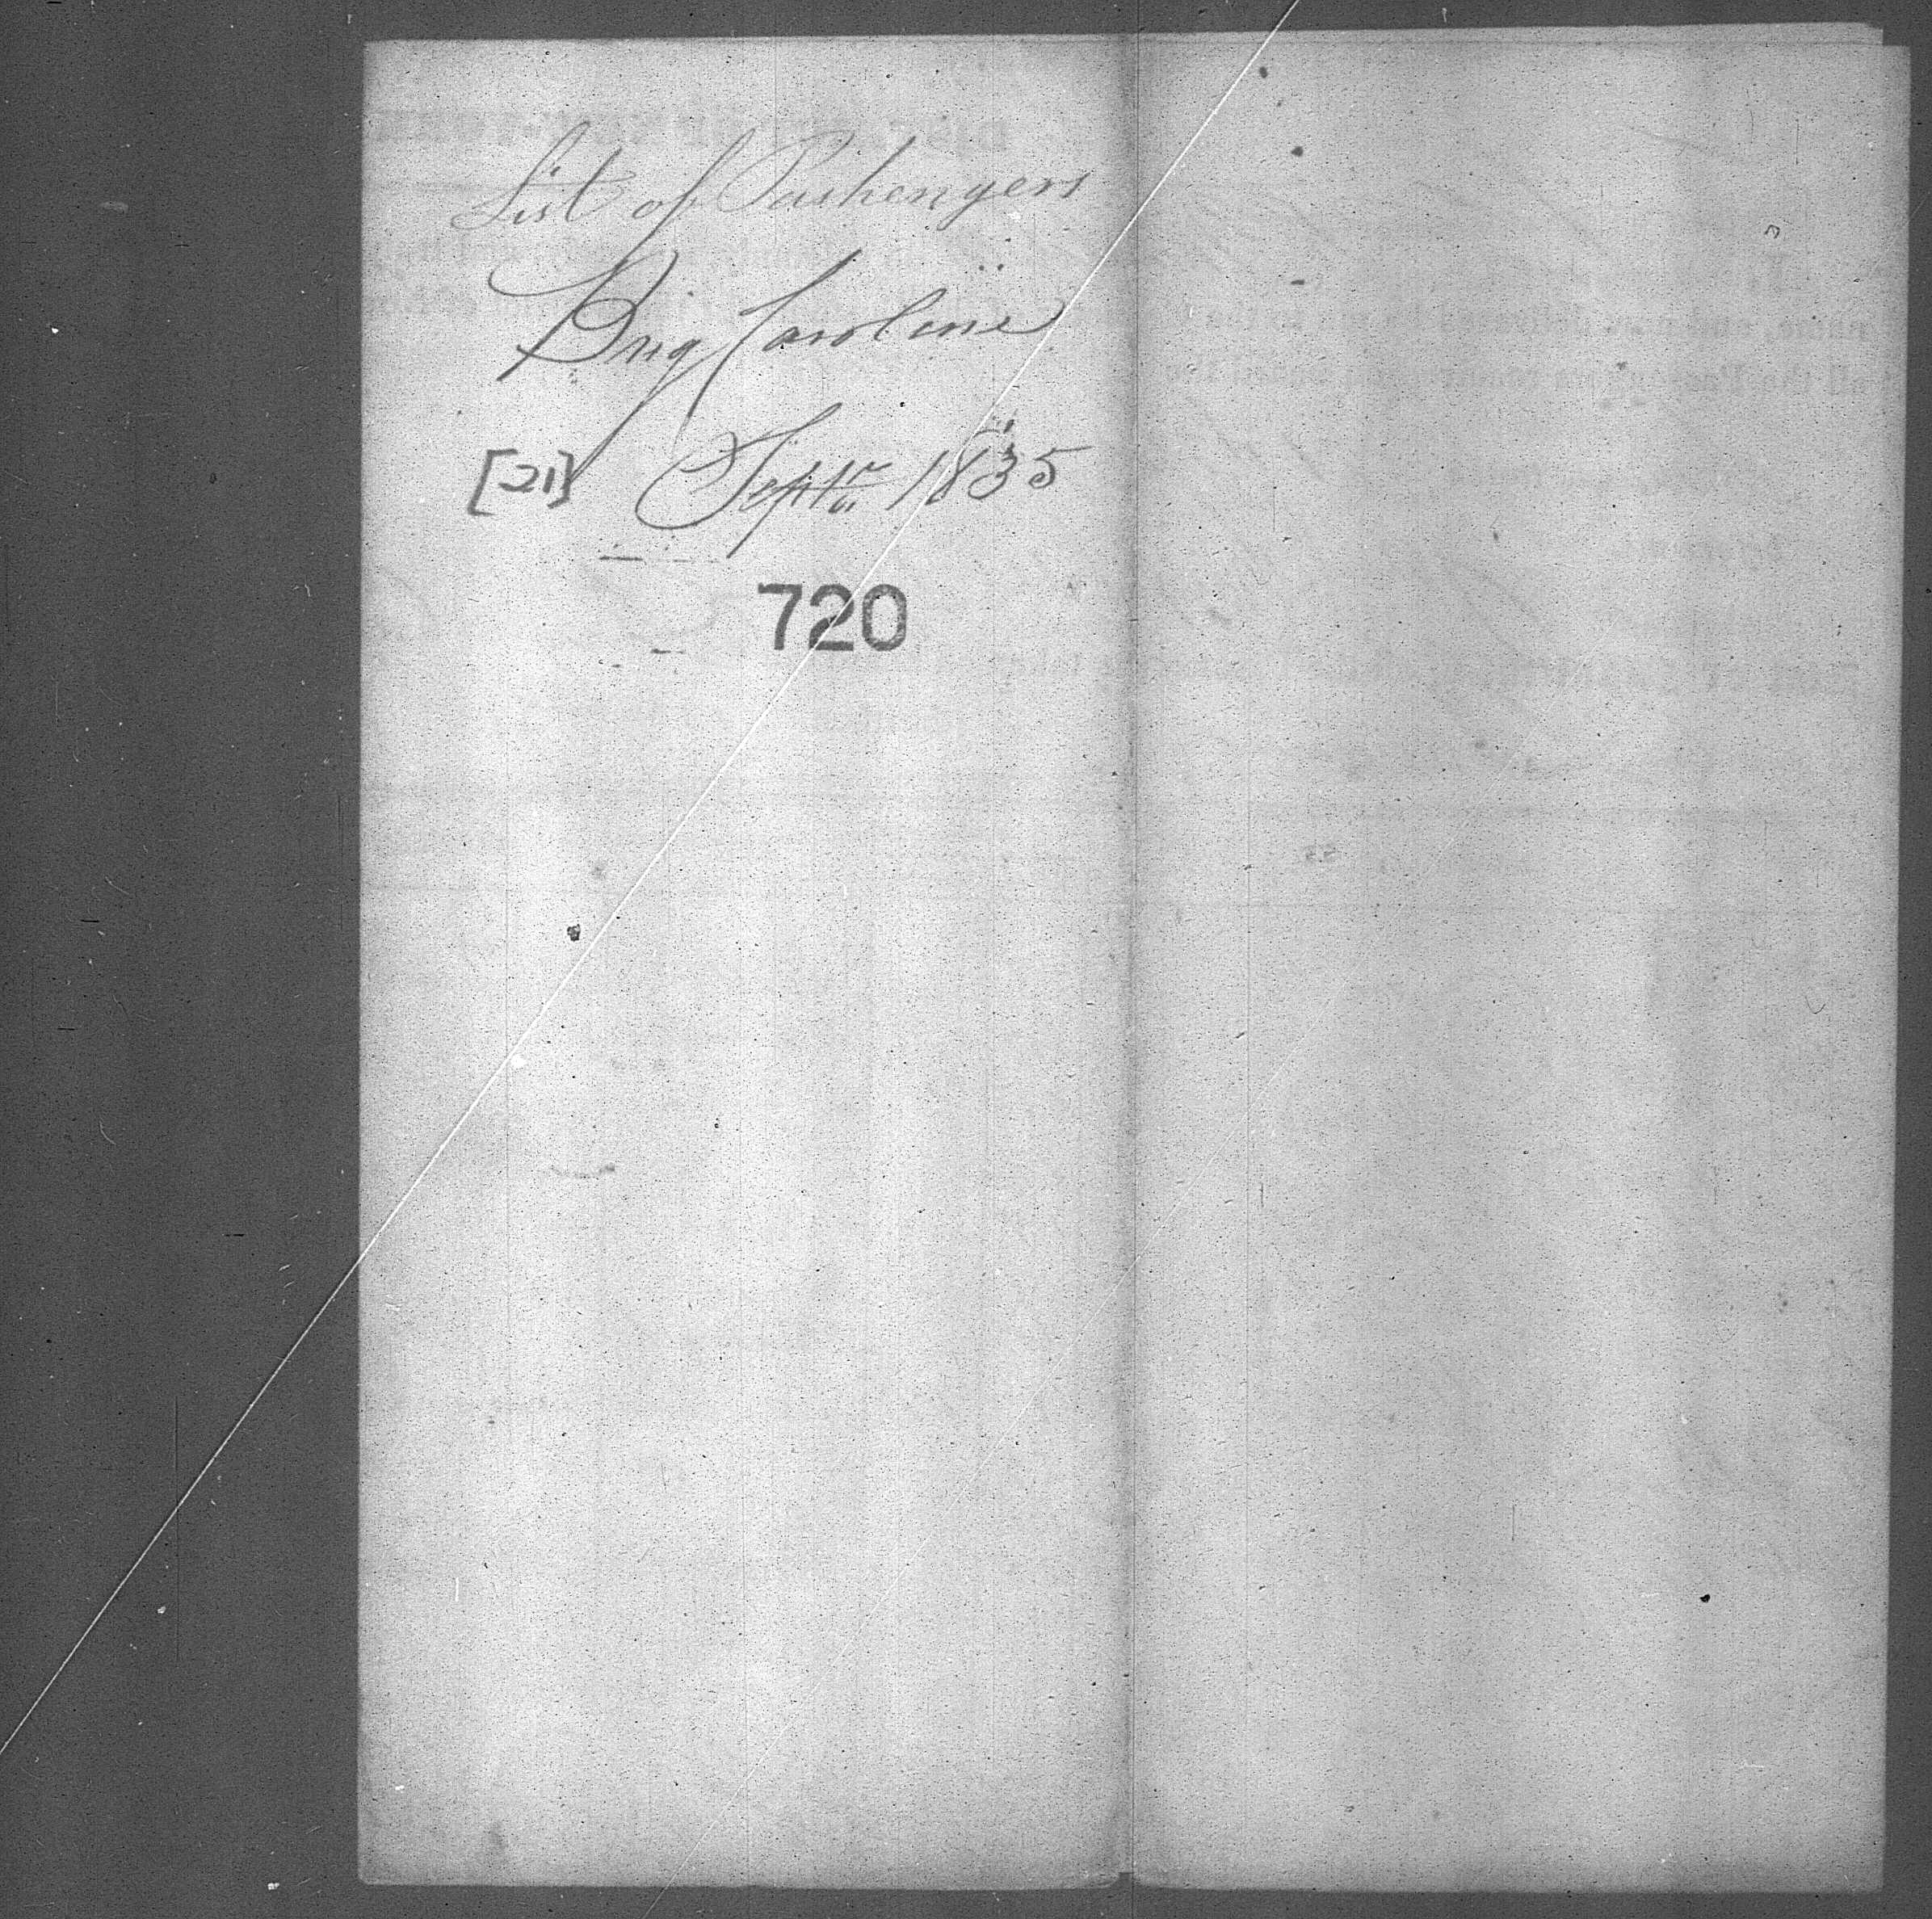 List of Pashengers
Brig Caroline
[21] Septr 1835
720